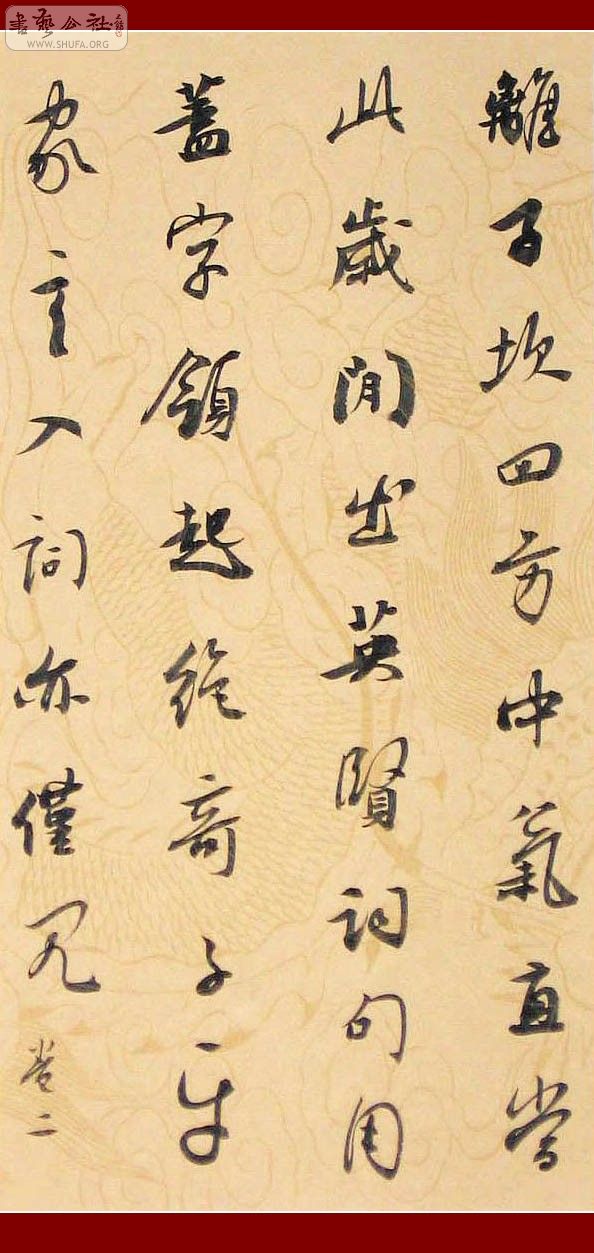 書藝公社
WWW.SHUFA.ORG
離子坎四方中氣直當
此歲閒出英賢詞句用
蓋字領起絕奇子平
家言入詞亦僅見 卷二